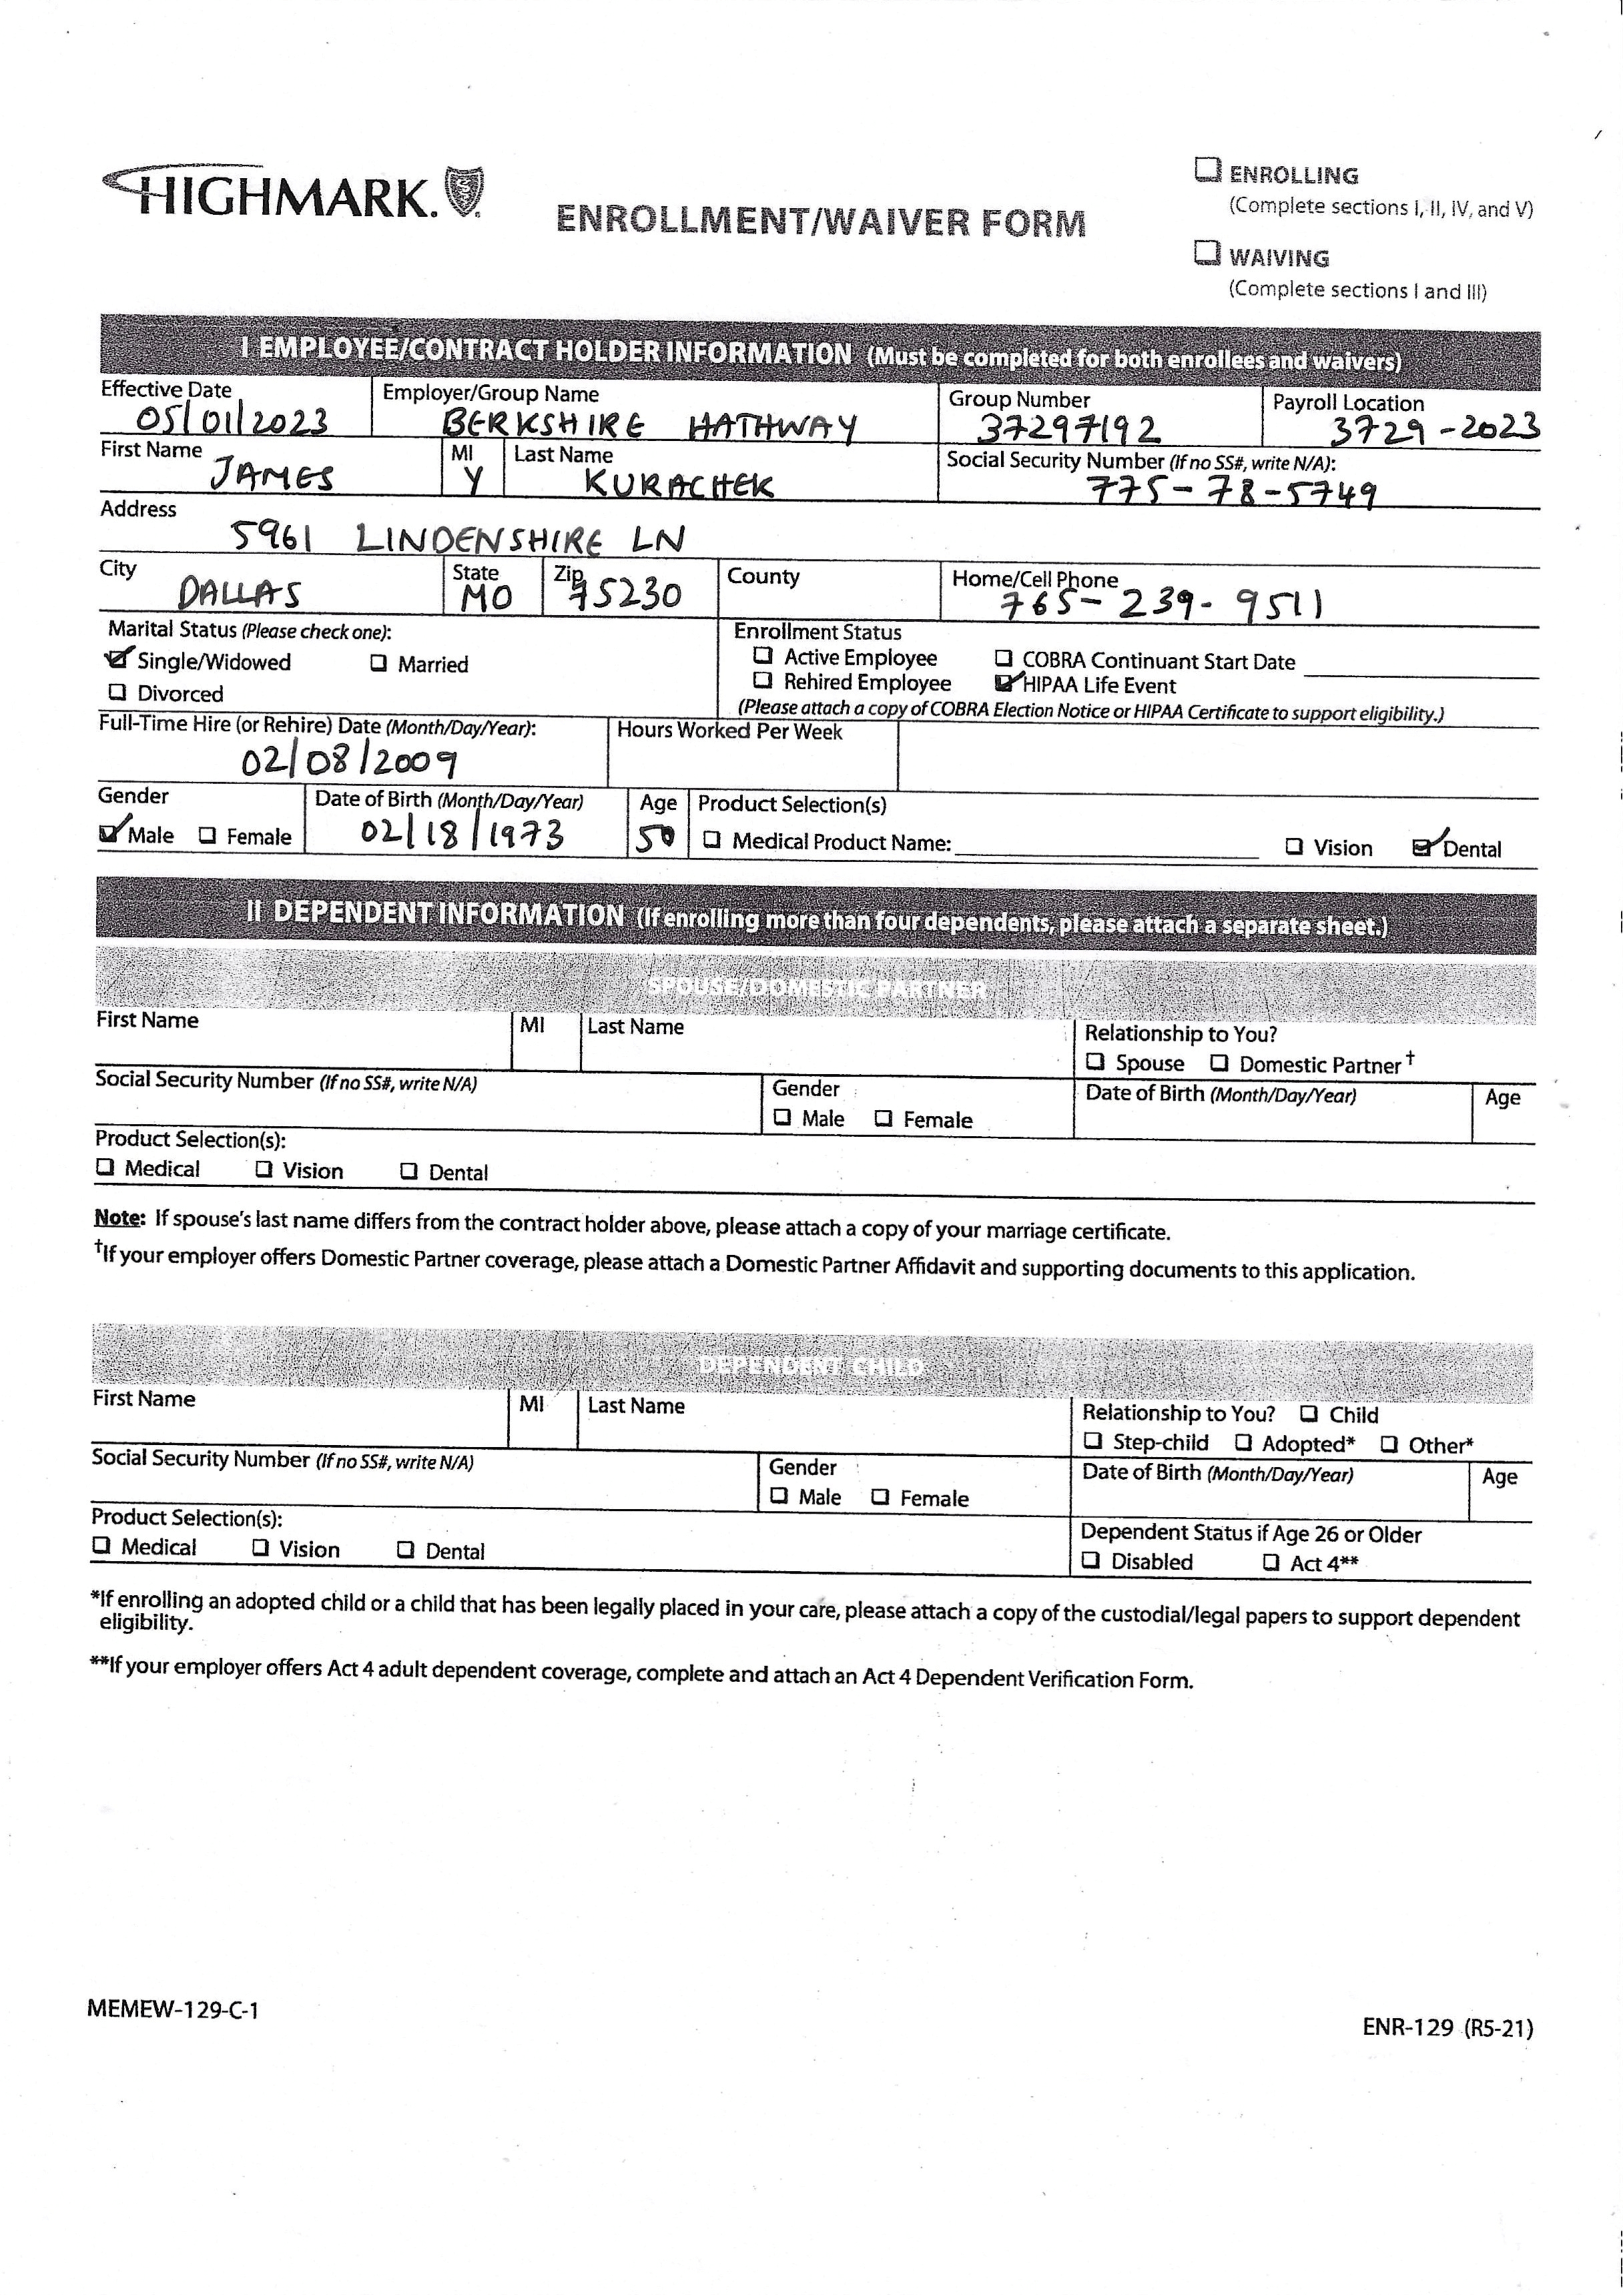 HIGHMARK.
ENROLLMENT/WAIVER FORM
☐ ENROLLING
(Complete sections I, II, IV, and V)
☐ WAIVING
(Complete sections I and III)
I EMPLOYEE/CONTRACT HOLDER INFORMATION (Must be completed for both enrollees and waivers)
Effective Date Employer/Group Name Group Number Payroll Location
05/01/2023 BERKSHIRE HATHWAY 37297192 3729-2023
First Name MI Last Name Social Security Number (If no SS#, write N/A):
JAMES Y KURACHEK 775-78-5749
Address
5961 LINDENSHIRE LN
City State Zip County Home/Cell Phone
DALLAS MO 75230 765-239-9511
Marital Status (Please check one): Enrollment Status
☑ Single/Widowed ☐ Married ☐ Active Employee ☐ COBRA Continuant Start Date
☐ Divorced ☐ Rehired Employee ☑ HIPAA Life Event
(Please attach a copy of COBRA Election Notice or HIPAA Certificate to support eligibility.)
Full-Time Hire (or Rehire) Date (Month/Day/Year): Hours Worked Per Week
02/08/2009
Gender Date of Birth (Month/Day/Year) Age Product Selection(s)
☑ Male ☐ Female 02/18/1973 50 ☐ Medical Product Name: ☐ Vision ☑ Dental
II DEPENDENT INFORMATION (If enrolling more than four dependents, please attach a separate sheet.)
SPOUSE/DOMESTIC PARTNER
First Name MI Last Name Relationship to You?
☐ Spouse ☐ Domestic Partner†
Social Security Number (If no SS#, write N/A) Gender Date of Birth (Month/Day/Year) Age
☐ Male ☐ Female
Product Selection(s):
☐ Medical ☐ Vision ☐ Dental
Note: If spouse's last name differs from the contract holder above, please attach a copy of your marriage certificate.
†If your employer offers Domestic Partner coverage, please attach a Domestic Partner Affidavit and supporting documents to this application.
DEPENDENT CHILD
First Name MI Last Name Relationship to You? ☐ Child
☐ Step-child ☐ Adopted* ☐ Other*
Social Security Number (If no SS#, write N/A) Gender Date of Birth (Month/Day/Year) Age
☐ Male ☐ Female
Product Selection(s): Dependent Status if Age 26 or Older
☐ Medical ☐ Vision ☐ Dental ☐ Disabled ☐ Act 4**
*If enrolling an adopted child or a child that has been legally placed in your care, please attach a copy of the custodial/legal papers to support dependent
eligibility.
**If your employer offers Act 4 adult dependent coverage, complete and attach an Act 4 Dependent Verification Form.
MEMEW-129-C-1
ENR-129 (R5-21)